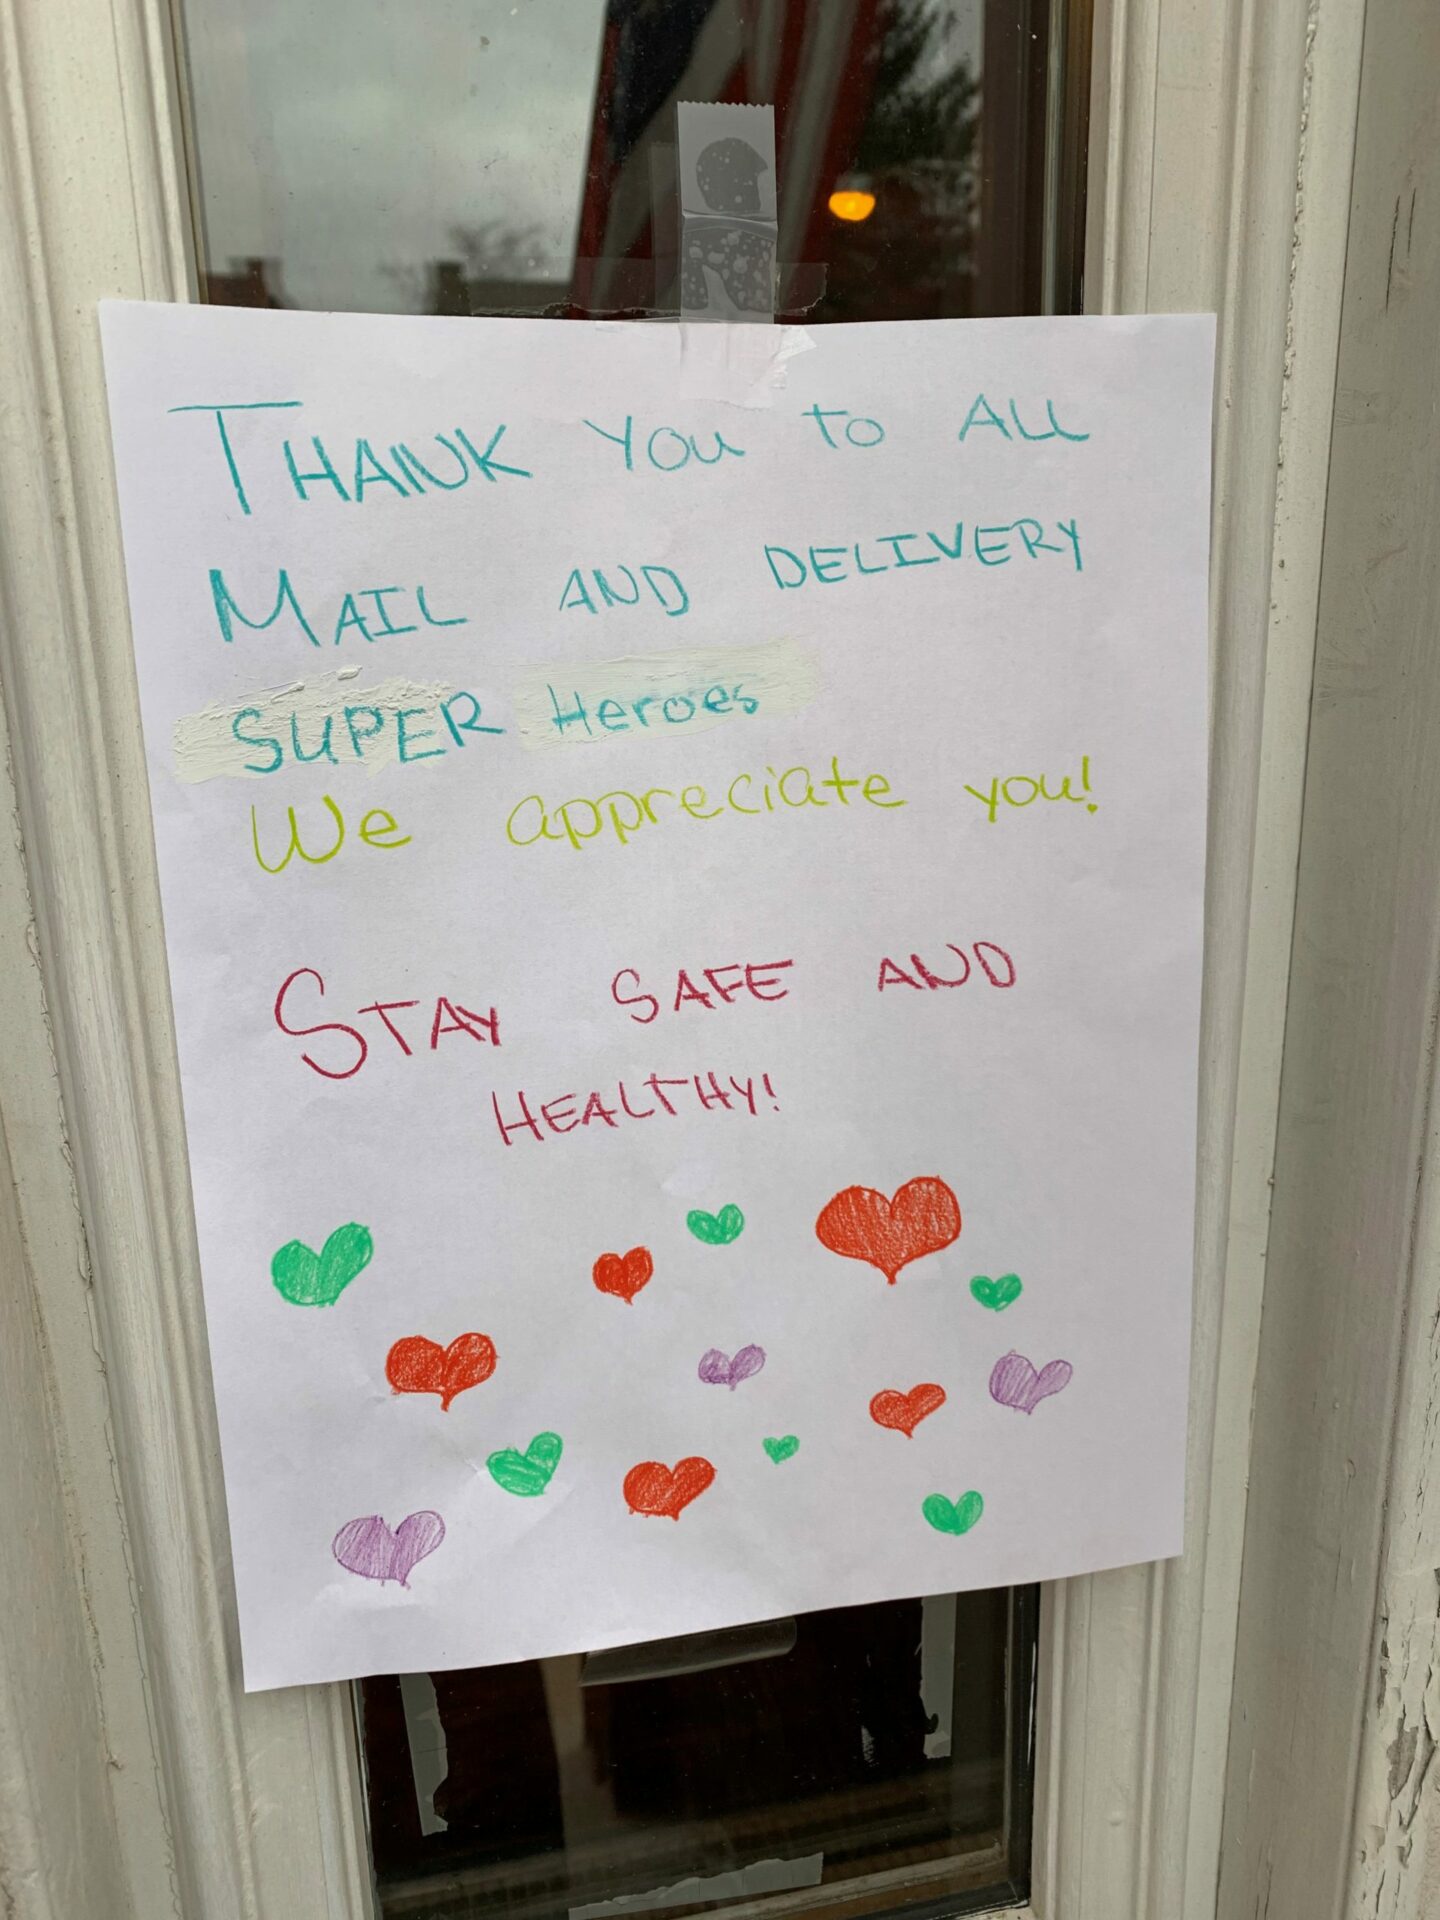 THANK YOU TO ALL
MAIL AND DELIVERY
SUPER Heroes
We appreciate you!
STAY SAFE AND
HEALTHY!